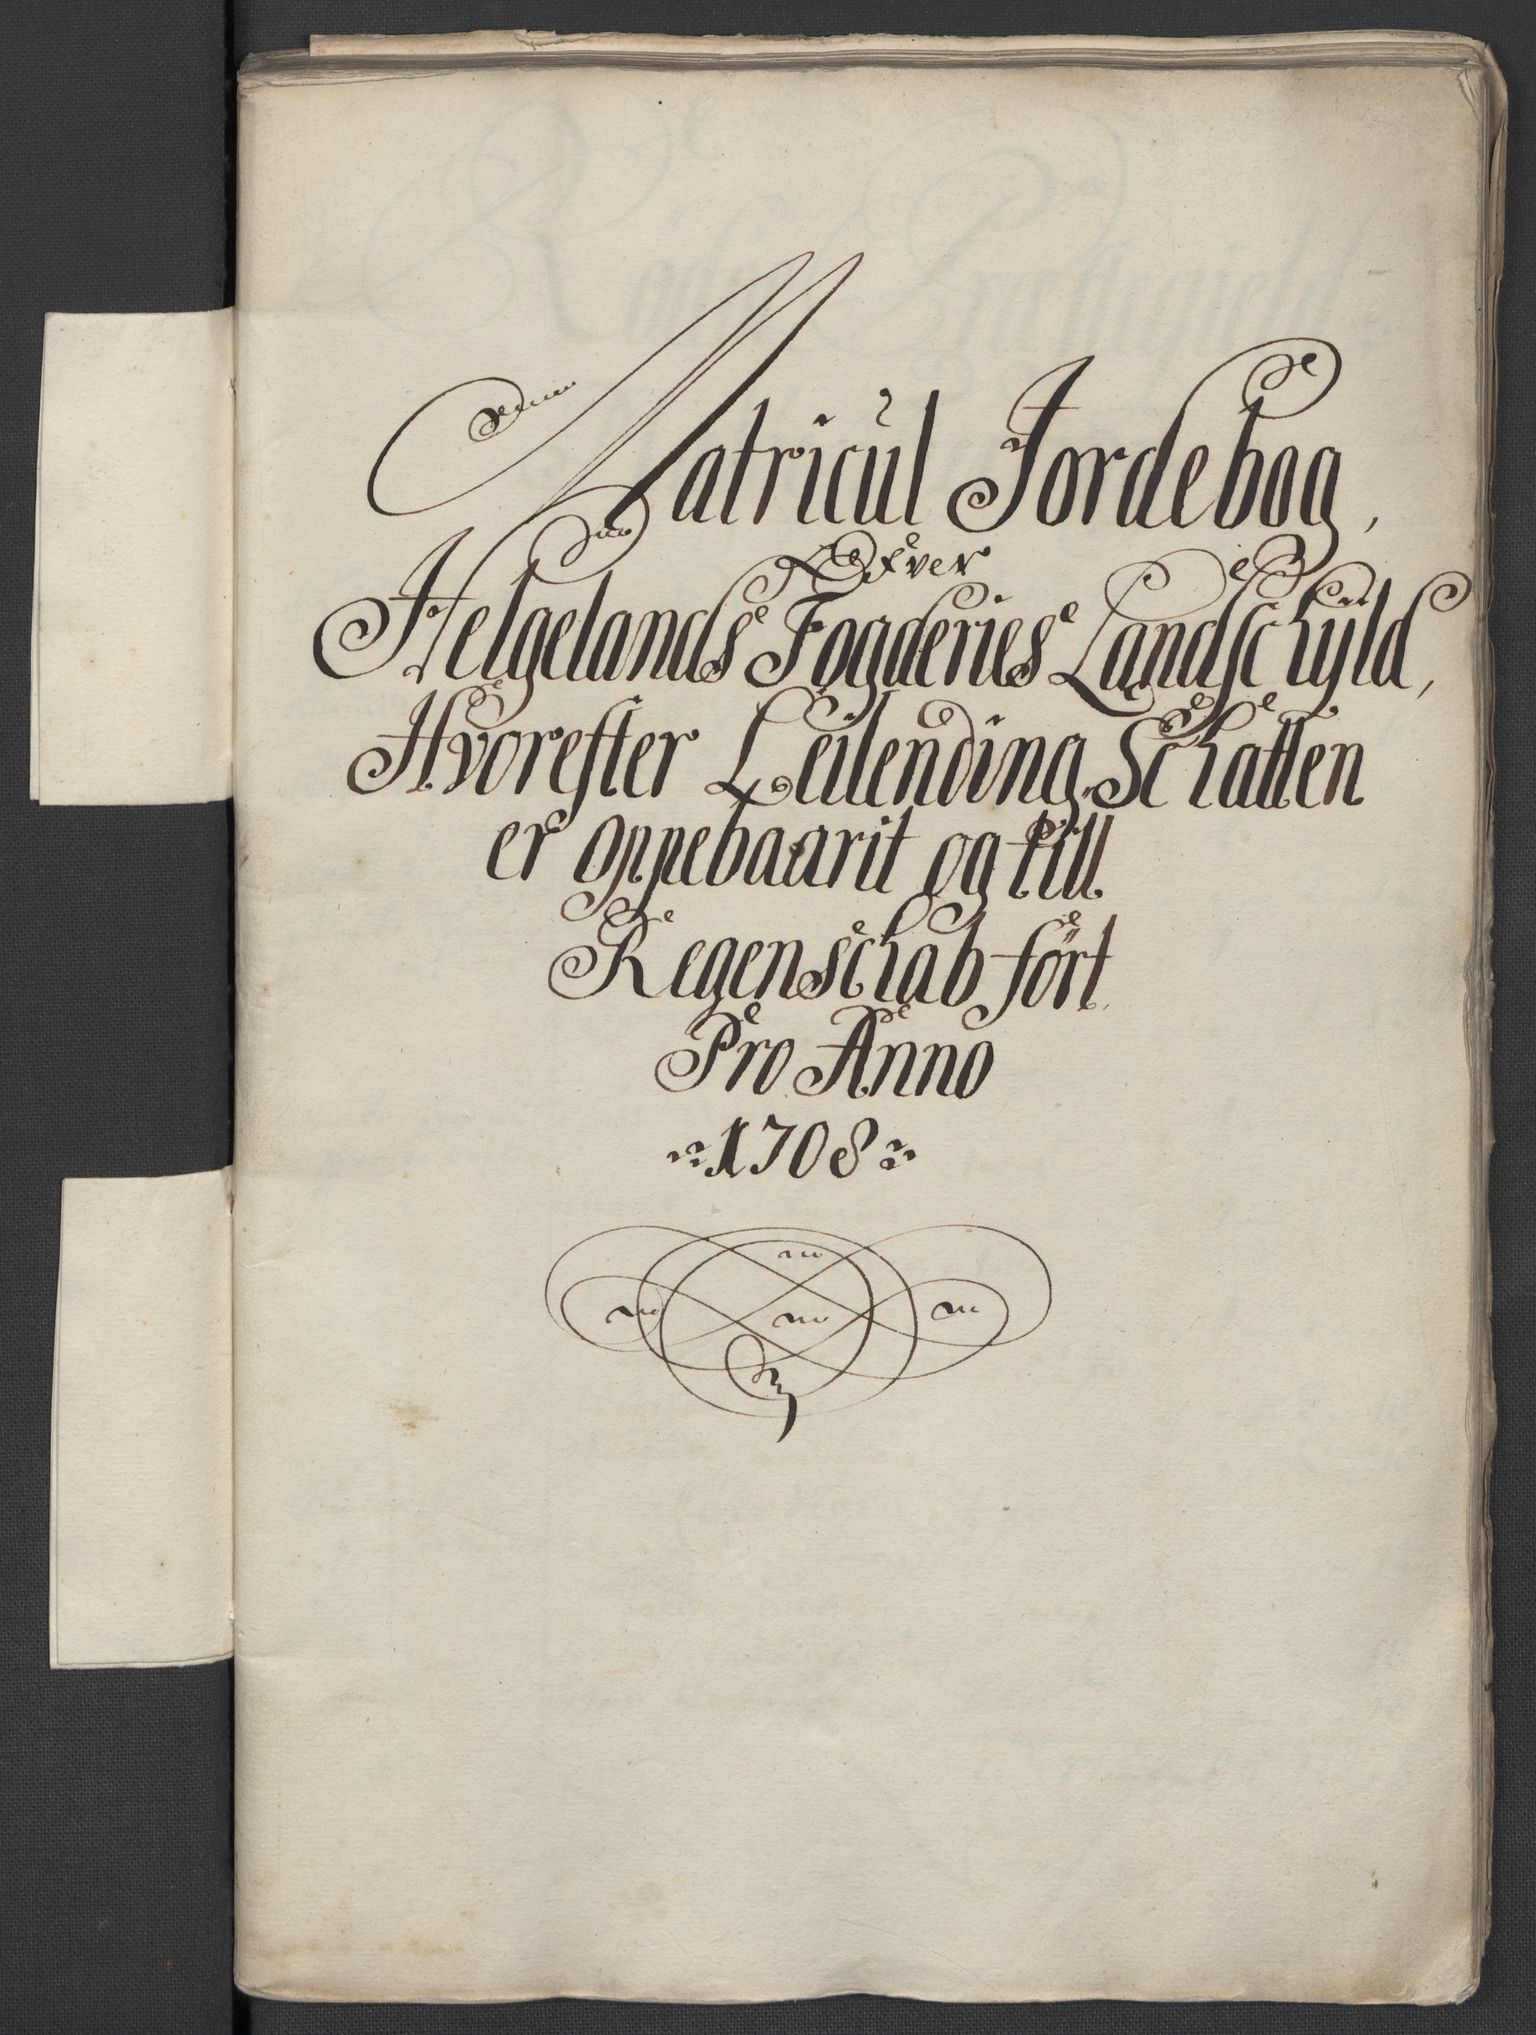 Matricul Jordebog,
Ofver
Helgelands Fogderies Landschÿld,
Hvorefter Leilending Schatten
er oppebaarit og till
Regenschab ført
Pro Anno
1708